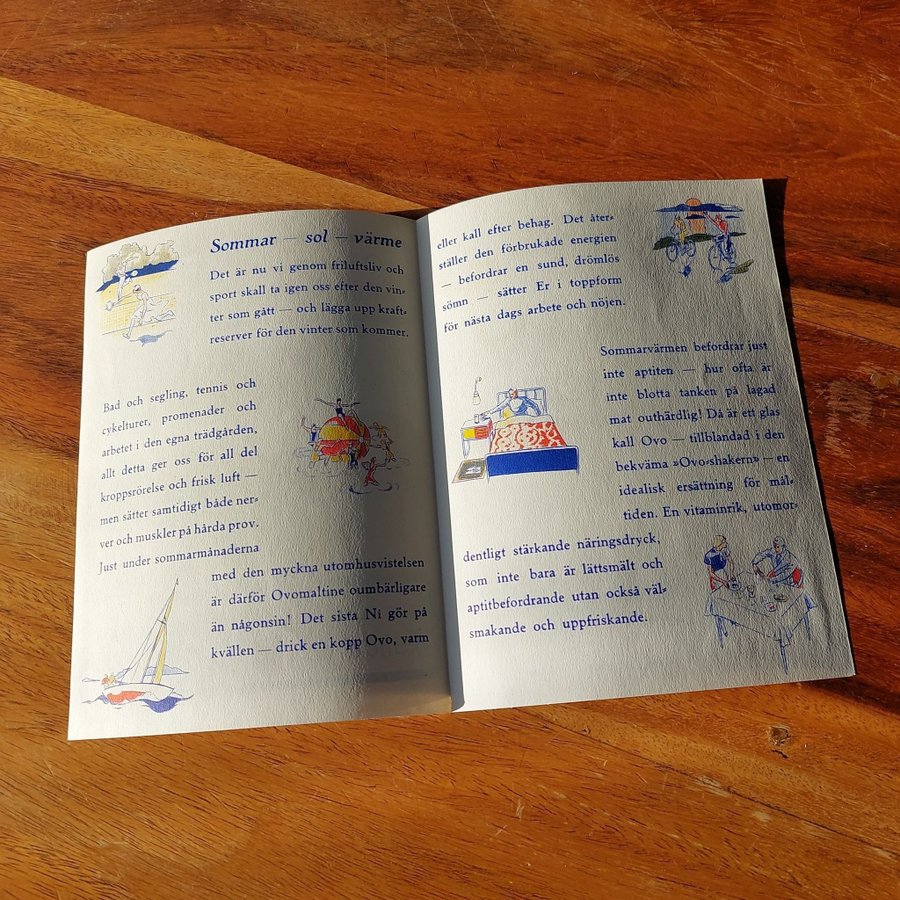 Sommar — sol — värme
Det är nu vi genom friluftsliv och
sport skall ta igen oss efter den vin-
ter som gått — och lägga upp kraft-
reserver för den vinter som kommer.
Bad och segling, tennis och
cykelturer, promenader och
arbetet i den egna trädgården,
allt detta ger oss för all del
kroppsrörelse och frisk luft —
men sätter samtidigt både ner-
ver och muskler på hårda prov.
Just under sommarmånaderna
med den myckna utomhusvistelsen
är därför Ovomaltine oumbärligare
än någonsin! Det sista Ni gör på
kvällen — drick en kopp Ovo, varm
eller kall efter behag. Det åter-
ställer den förbrukade energien
— befordrar en sund, drömlös
sömn — sätter Er i toppform
för nästa dags arbete och nöjen.
Sommarvärmen befordrar just
inte aptiten — hur ofta är
inte blotta tanken på lagad
mat outhärdlig! Då är ett glas
kall Ovo — tillblandad i den
bekväma »Ovo-shakern» — en
idealisk ersättning för mål-
tiden. En vitaminrik, utomor-
dentligt stärkande näringsdryck,
som inte bara är lättsmält och
aptitbefordrande utan också väl-
smakande och uppfriskande.